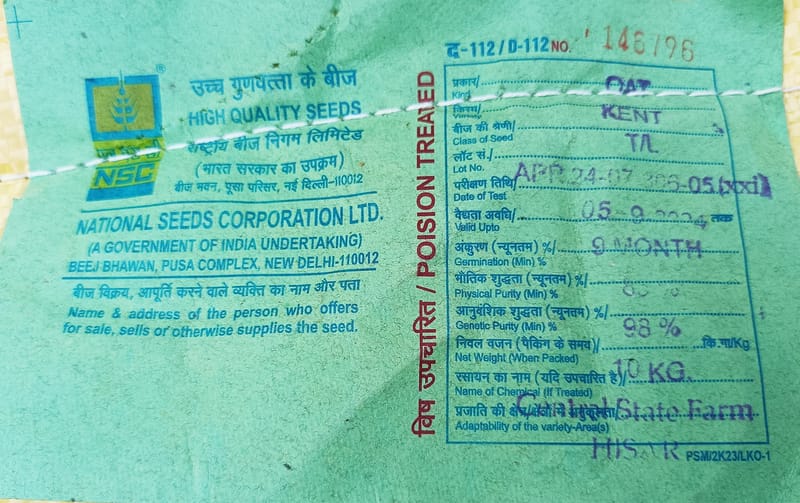 उच्च गुणवत्ता के बीज
HIGH QUALITY SEEDS
राष्ट्रीय बीज निगम लिमिटेड
(भारत सरकार का उपक्रम)
बीज भवन, पूसा परिसर, नई दिल्ली-110012
NSC
NATIONAL SEEDS CORPORATION LTD.
(A GOVERNMENT OF INDIA UNDERTAKING)
BEEJ BHAWAN, PUSA COMPLEX, NEW DELHI-110012
बीज विक्रय, आपूर्ति करने वाले व्यक्ति का नाम और पता
Name & address of the person who offers
for sale, sells or otherwise supplies the seed.
विष उपचारित / POISION TREATED
द-112/D-112 NO. 146796
प्रकार/ OAT
Kind
किस्म/ KENT
Variety
बीज की श्रेणी/ T/L
Class of Seed
लॉट सं./
Lot No. APR 24-07
परीक्षण तिथि/
Date of Test
वैधता अवधि/ 05-9-2024 तक
Valid Upto
अंकुरण (न्यूनतम) %/ 9 MONTH
Germination (Min) %
भौतिक शुद्धता (न्यूनतम) %/
Physical Purity (Min) %
आनुवंशिक शुद्धता (न्यूनतम) %/ 98 %
Genetic Purity (Min) %
निवल वजन (पैकिंग के समय)/ कि.ग्रा/Kg
Net Weight (When Packed)
रसायन का नाम (यदि उपचारित है)/ 10 KG.
Name of Chemical (If Treated)
प्रजाति की Central State Farm
Adaptability of the variety-Area(s)
HISAR PSM/2K23/LKO-1